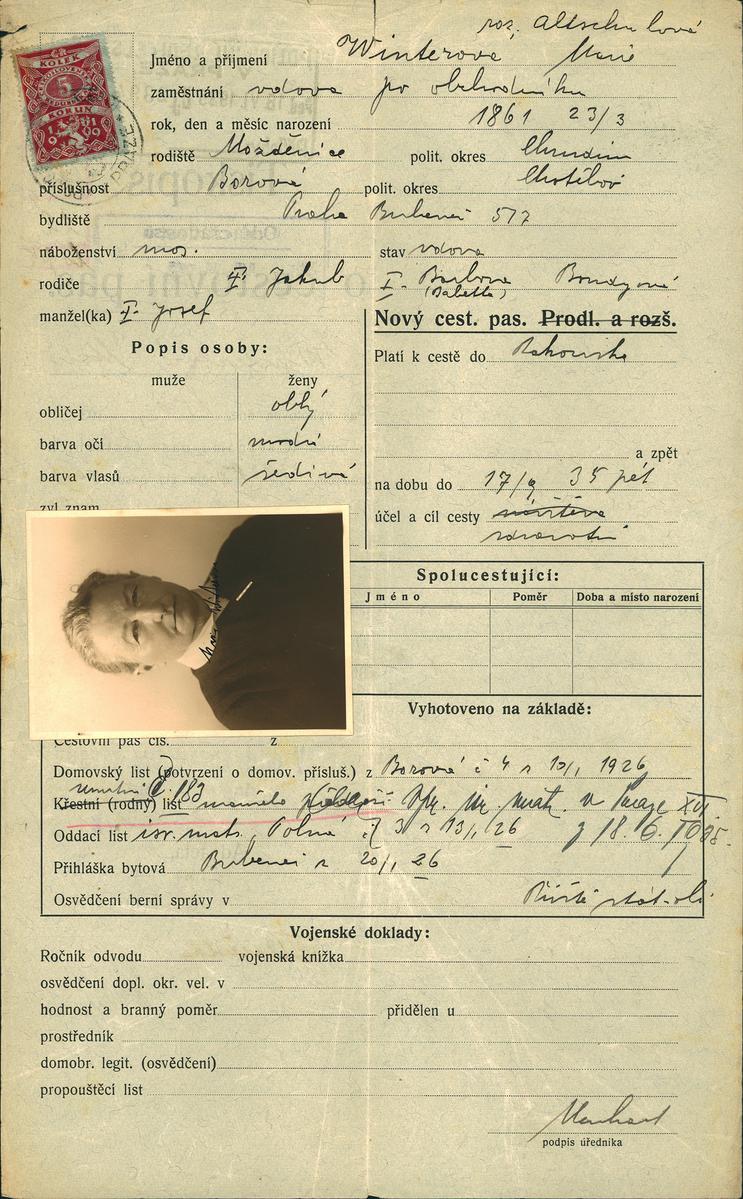 roz. Altschulová
Jméno a příjmení Winterová Marie
zaměstnání vdova po obchodníku
rok, den a měsíc narození 1861 23/3
rodiště Možděnice polit. okres Chrudim
příslušnost Borová polit. okres Chotěboř
bydliště Praha Bubeneč 517
náboženství mos. stav vdova
rodiče Jakub Barbora Bondyová
(Babetta)
manžel(ka) Josef
Nový cest. pas. Prodl. a rozš.
Popis osoby:
Platí k cestě do Rakouska
muže ženy
obličej oblý
barva očí modrá
a zpět
barva vlasů šedivá
na dobu do 17/9 35 pět
zvl. znam.
účel a cíl cesty návštěva
zdravotní
Spolucestující:
Jméno Poměr Doba a místo narození
Vyhotoveno na základě:
Cestovní pas čís. z
Domovský list (potvrzení o domov. přísluš.) z Borová č 4 z 10/1 1926
Křestní (rodný) list
Oddací list isr. mat. Polná z 13/1 26 z 18. 6. 1935.
Přihláška bytová Bubeneč z 20/1 26
Osvědčení berní správy v
Vojenské doklady:
Ročník odvodu vojenská knížka
osvědčení dopl. okr. vel. v
hodnost a branný poměr přidělen u
prostředník
domobr. legit. (osvědčení)
propouštěcí list
podpis úředníka